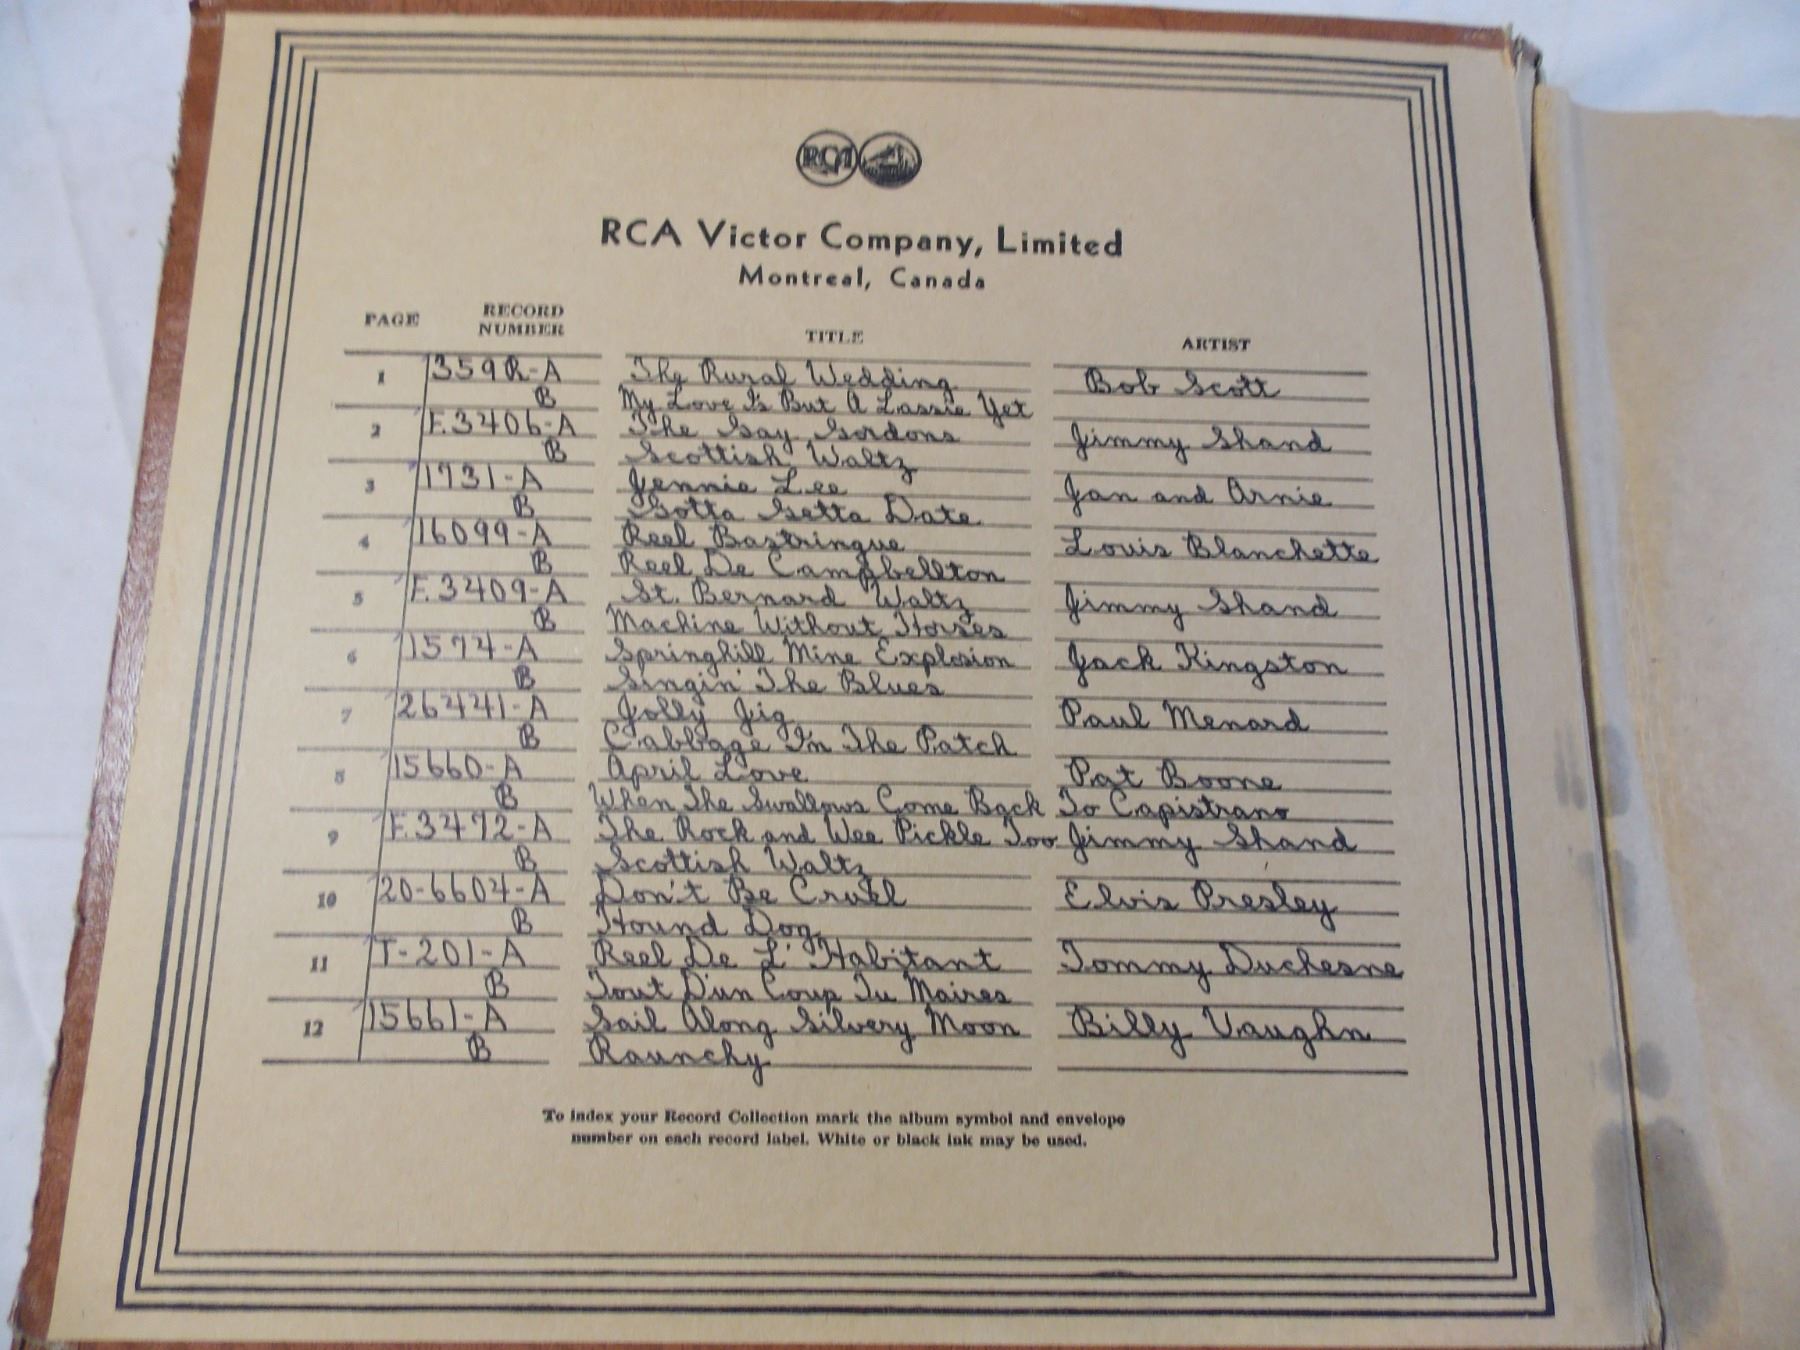 RCA
RCA Victor Company, Limited
Montreal, Canada
PAGE RECORD NUMBER TITLE ARTIST
1 359R-A The Rural Wedding Bob Scott
B My Love Is But A Lassie Yet
2 F.3406-A The Gay Gordons Jimmy Shand
B Scottish Waltz
3 1731-A Jennie Lee Jan and Arnie
B Gotta Getta Date
4 16099-A Reel Bastringue Louis Blanchette
B Reel De Campbellton
5 F.3409-A St. Bernard Waltz Jimmy Shand
B Machine Without Horses
6 1574-A Springhill Mine Explosion Jack Kingston
B Singin' The Blues
7 26441-A Jolly Jig Paul Menard
B Cabbage In The Patch
8 15660-A April Love Pat Boone
B When The Swallows Come Back To Capistrano
9 F.3472-A The Rock and Wee Pickle Tow Jimmy Shand
B Scottish Waltz
10 20-6604-A Don't Be Cruel Elvis Presley
B Hound Dog
11 T-201-A Reel De L' Habitant Tommy Duchesne
B Tout D'un Coup Tu Maires
12 15661-A Sail Along Silvery Moon Billy Vaughn
B Raunchy
To index your Record Collection mark the album symbol and envelope
number on each record label. White or black ink may be used.